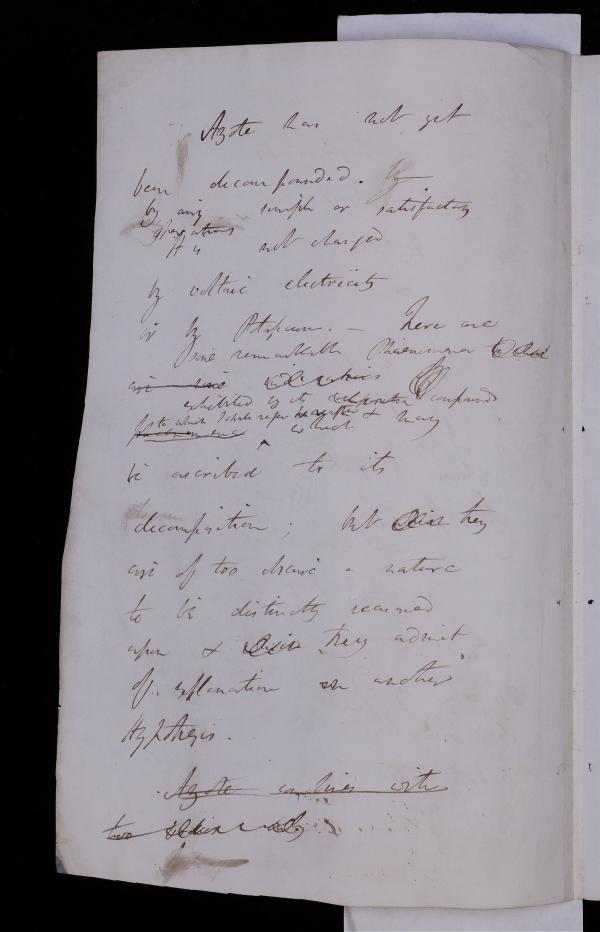 Azote has not yet
been decompounded. by
by any simple or satisfactory
operations
It is not changed
by voltaic electricity
or by Potassium. – There are
some remarkable Phaenomena
are some
exhibited by its compounds
to which I shall refer hereafter & may
phaenomena which
be ascribed to its
decomposition; but they
are of too obscure a nature
to be distinctly reasoned
upon & they admit
of explanation on another
Hypothesis.
Azote combines with
two